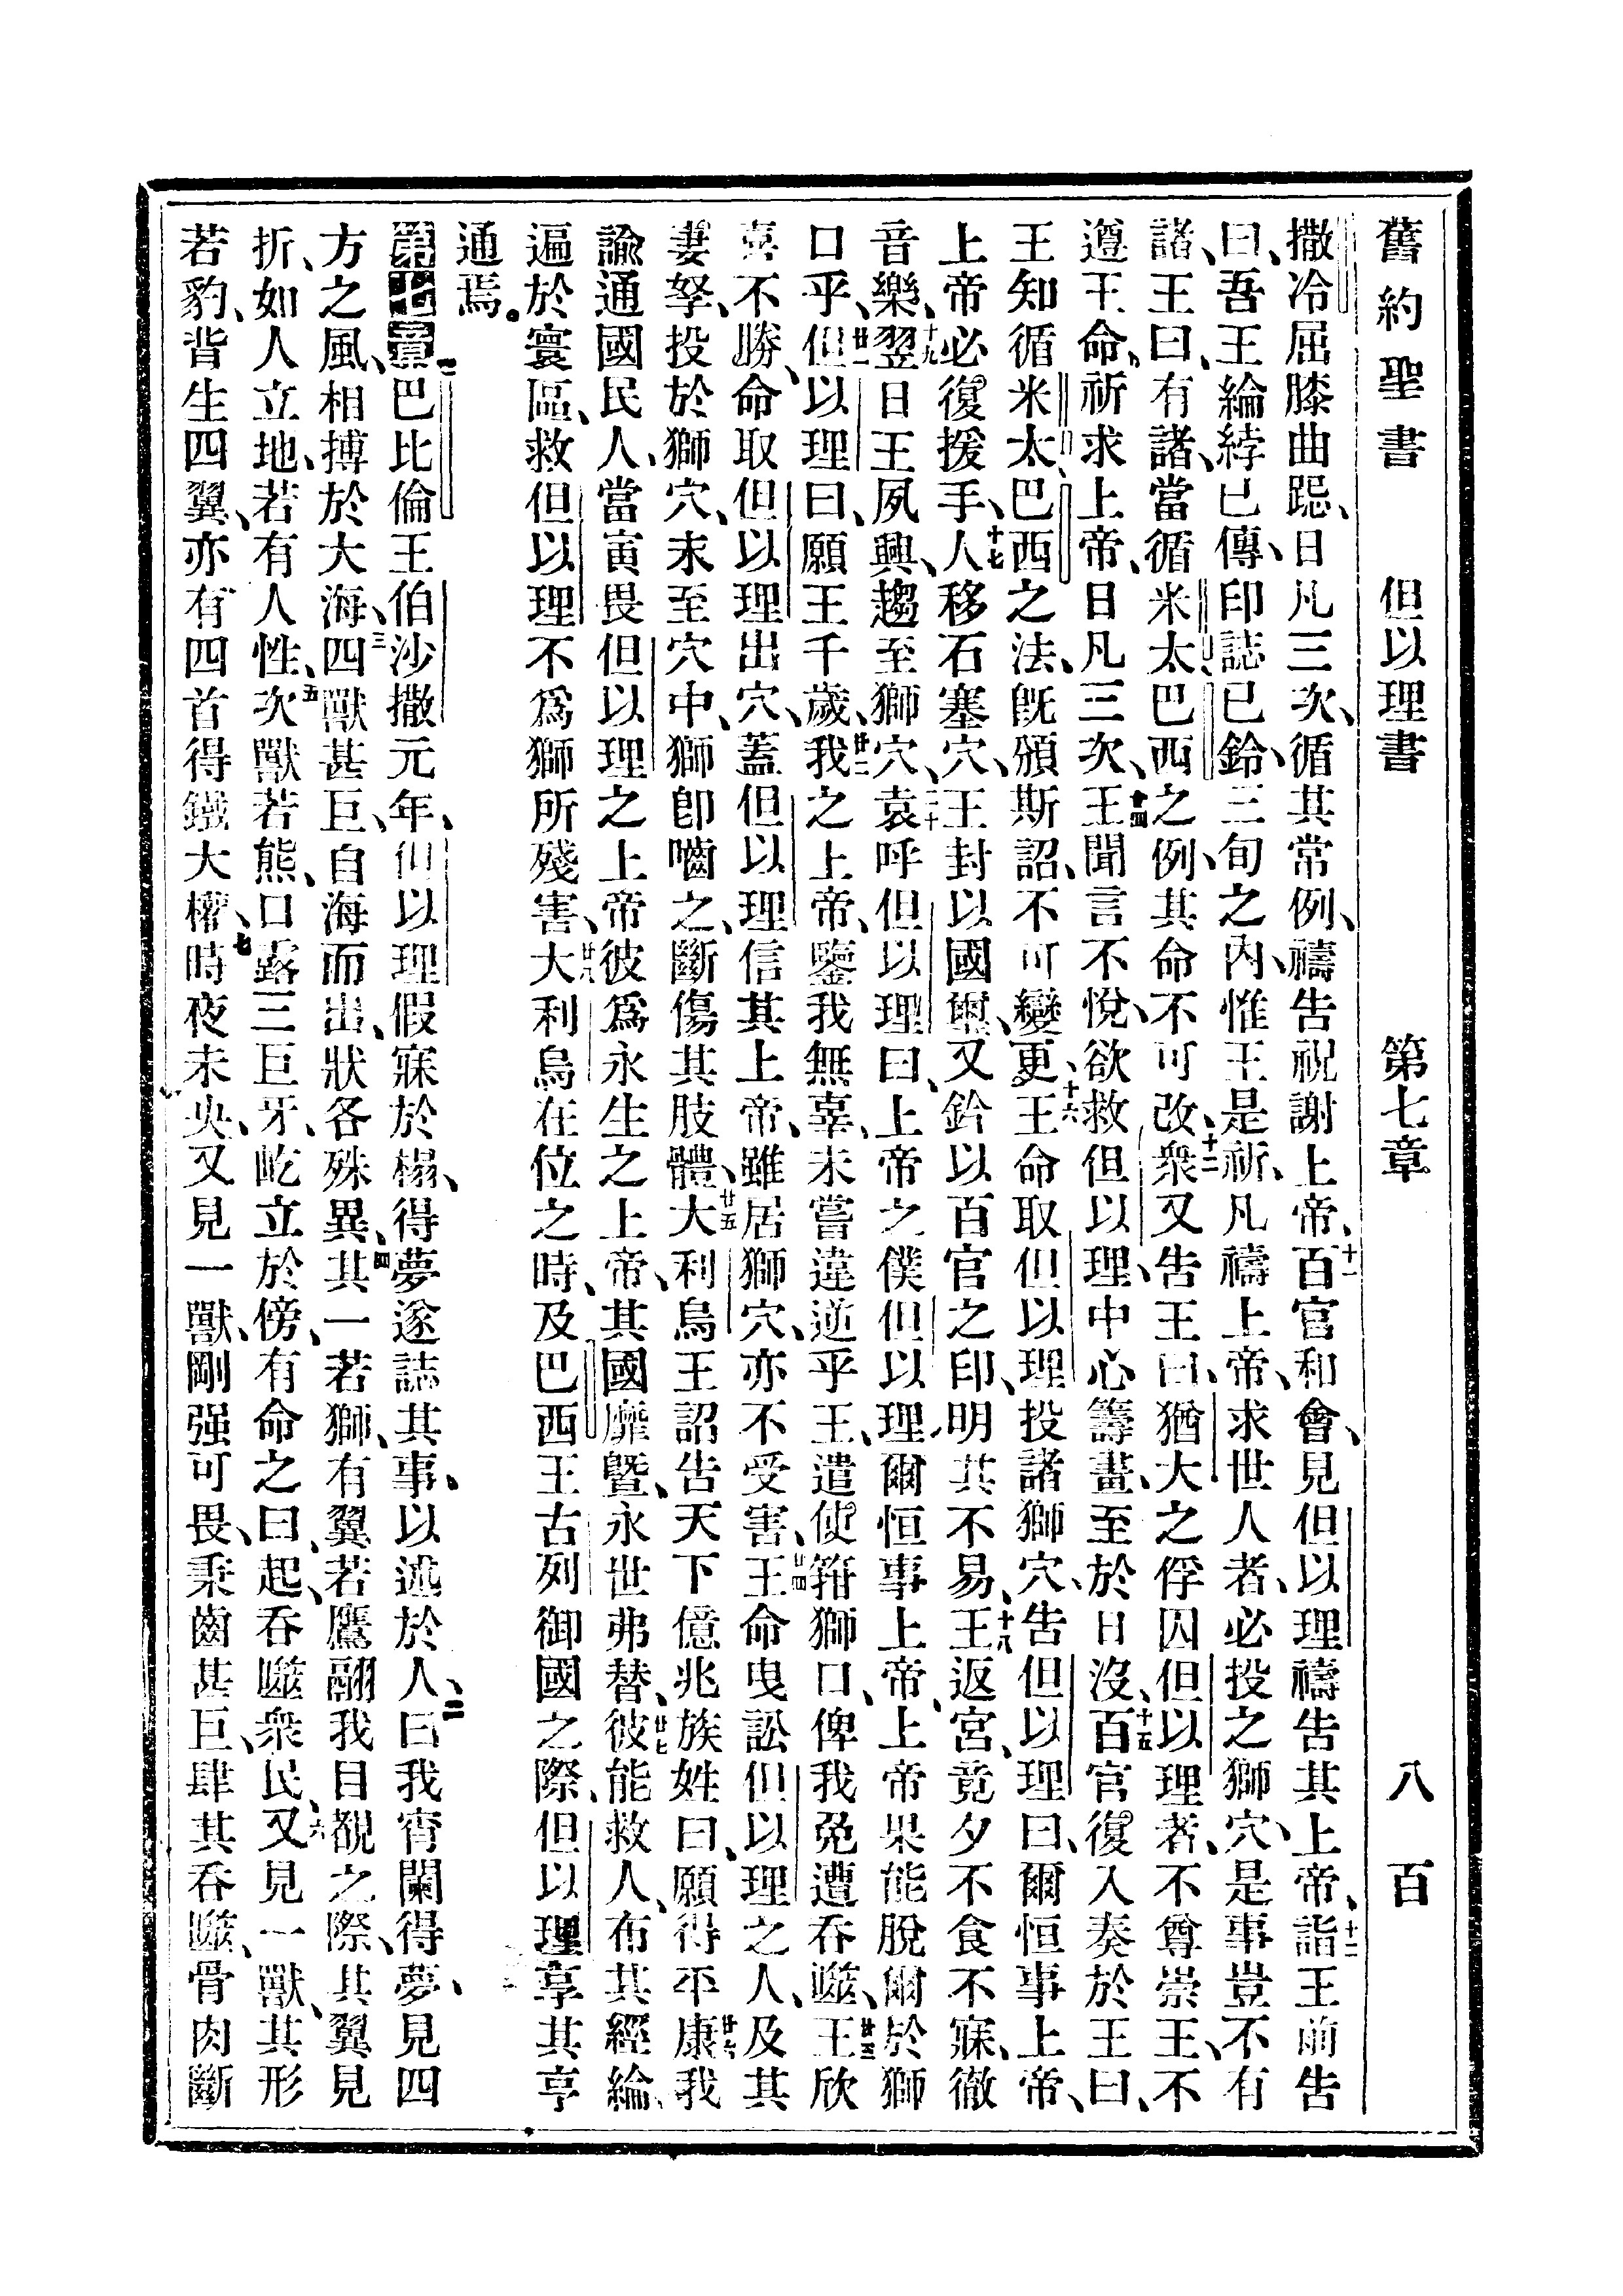 舊約聖書 但以理書 第七章 八百
撒冷屈膝曲跽、日凡三次、循其常例、禱告祝謝上帝、十一百官和會、見但以理禱告其上帝、十二詣王前告
曰、吾王綸綍已傳、印誌已鈐、三旬之內、惟王是祈、凡禱上帝、求世人者、必投之獅穴、是事豈不有
諸、王曰、有諸、當循米太巴西之例、其命不可改、十三衆又告王曰、猶大之俘囚但以理者、不尊崇王、不
遵王命、祈求上帝、日凡三次、十四王聞言不悅、欲救但以理、中心籌畫、至於日沒、十五百官復入奏於王曰、
王知循米太、巴西之法、旣頒斯詔、不可變更、十六王命取但以理、投諸獅穴、告但以理曰、爾恒事上帝、
上帝必復援手、十七人移石塞穴、王封以國璽、又鈐以百官之印、明其不易、十八王返宮、竟夕不食不寐、徹
音樂、十九翌日王夙興、趨至獅穴、二十哀呼但以理曰、上帝之僕但以理、爾恒事上帝、上帝果能脫爾於獅
口乎、廿一但以理曰、願王千歲、廿二我之上帝、鑒我無辜、未嘗違逆乎王、遣使箝獅口、俾我免遭吞噬、廿三王欣
喜不勝、命取但以理出穴、蓋但以理信其上帝、雖居獅穴、亦不受害、廿四王命曳訟但以理之人、及其
妻孥、投於獅穴、未至穴中、獅卽嚙之、斷傷其肢體、廿五大利烏王詔告天下億兆族姓曰、願得平康、廿六我
諭通國民人、當寅畏但以理之上帝、彼爲永生之上帝、其國靡曁、永世弗替、廿七彼能救人、布其經綸、
遍於寰區、救但以理不爲獅所殘害、廿八大利烏在位之時、及巴西王古列御國之際、但以理享其亨
通焉。
第七章 一巴比倫王伯沙撒元年、但以理假寐於榻、得夢遂誌其事、以述於人、二曰、我宵闌得夢、見四
方之風、相搏於大海、三四獸甚巨、自海而出、狀各殊異、四其一若獅、有翼若鷹翮、我目覩之際、其翼見
折、如人立地、若有人性、五次獸若熊、口露三巨牙、屹立於傍、有命之曰、起、吞噬衆民、六又見一獸、其形
若豹、背生四翼、亦有四首、得鐵大權、七時夜未央、又見一獸、剛强可畏、秉齒甚巨、肆其吞噬、骨肉斷